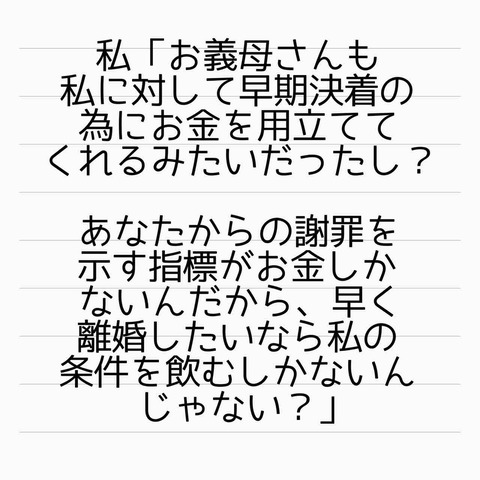 私「お義母さんも
私に対して早期決着の
為にお金を用立てて
くれるみたいだったし？
あなたからの謝罪を
示す指標がお金しか
ないんだから、早く
離婚したいなら私の
条件を飲むしかないん
じゃない？」